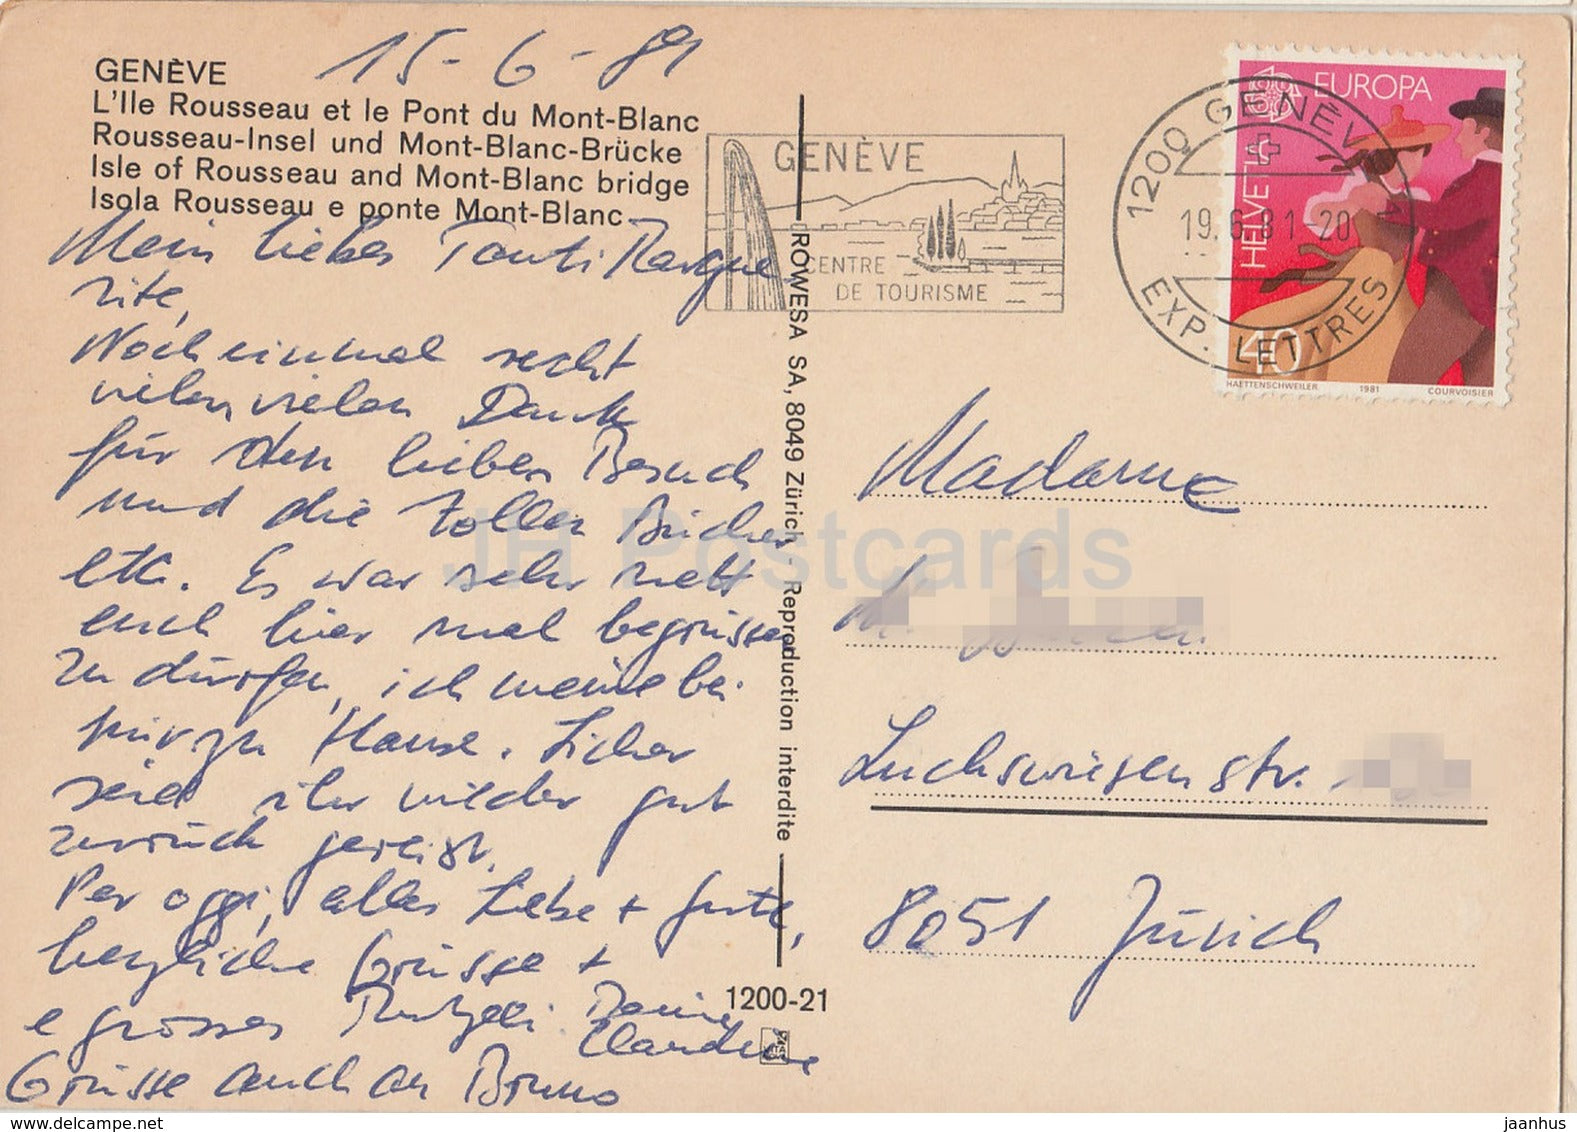 15-6-81
GENÈVE
L'Ile Rousseau et le Pont du Mont-Blanc
Rousseau-Insel und Mont-Blanc-Brücke
Isle of Rousseau and Mont-Blanc bridge
Isola Rousseau e ponte Mont-Blanc
Mein liebes Tanti Margue
rite,
Noch einmal recht
vielen vielen Dank
für den lieben Besuch
und die tollen Bücher
etc. Es war sehr nett
euch hier mal begrüssen
zu dürfen, ich meine bei
mir zu Hause. Sicher
seid ihr wieder gut
zurück gereist.
Per oggi, alles Liebe + gute,
herzliche Grüsse +
e grosses Puntzeli
Claudine
Grüsse auch an Bruno
ROWESA SA, 8049 Zürich. Reproduction interdite
1200-21
GENÈVE
CENTRE
DE TOURISME
1200 GENÈVE 1
19.6.81-20
EXP. LETTRES
EUROPA
HELVETIA
40
HAETTENSCHWEILER 1981 COURVOISIER
Madame
M.
Luchswiesenstr.
8051 Zürich
JH Postcards
www.delcampe.net
jaanhus